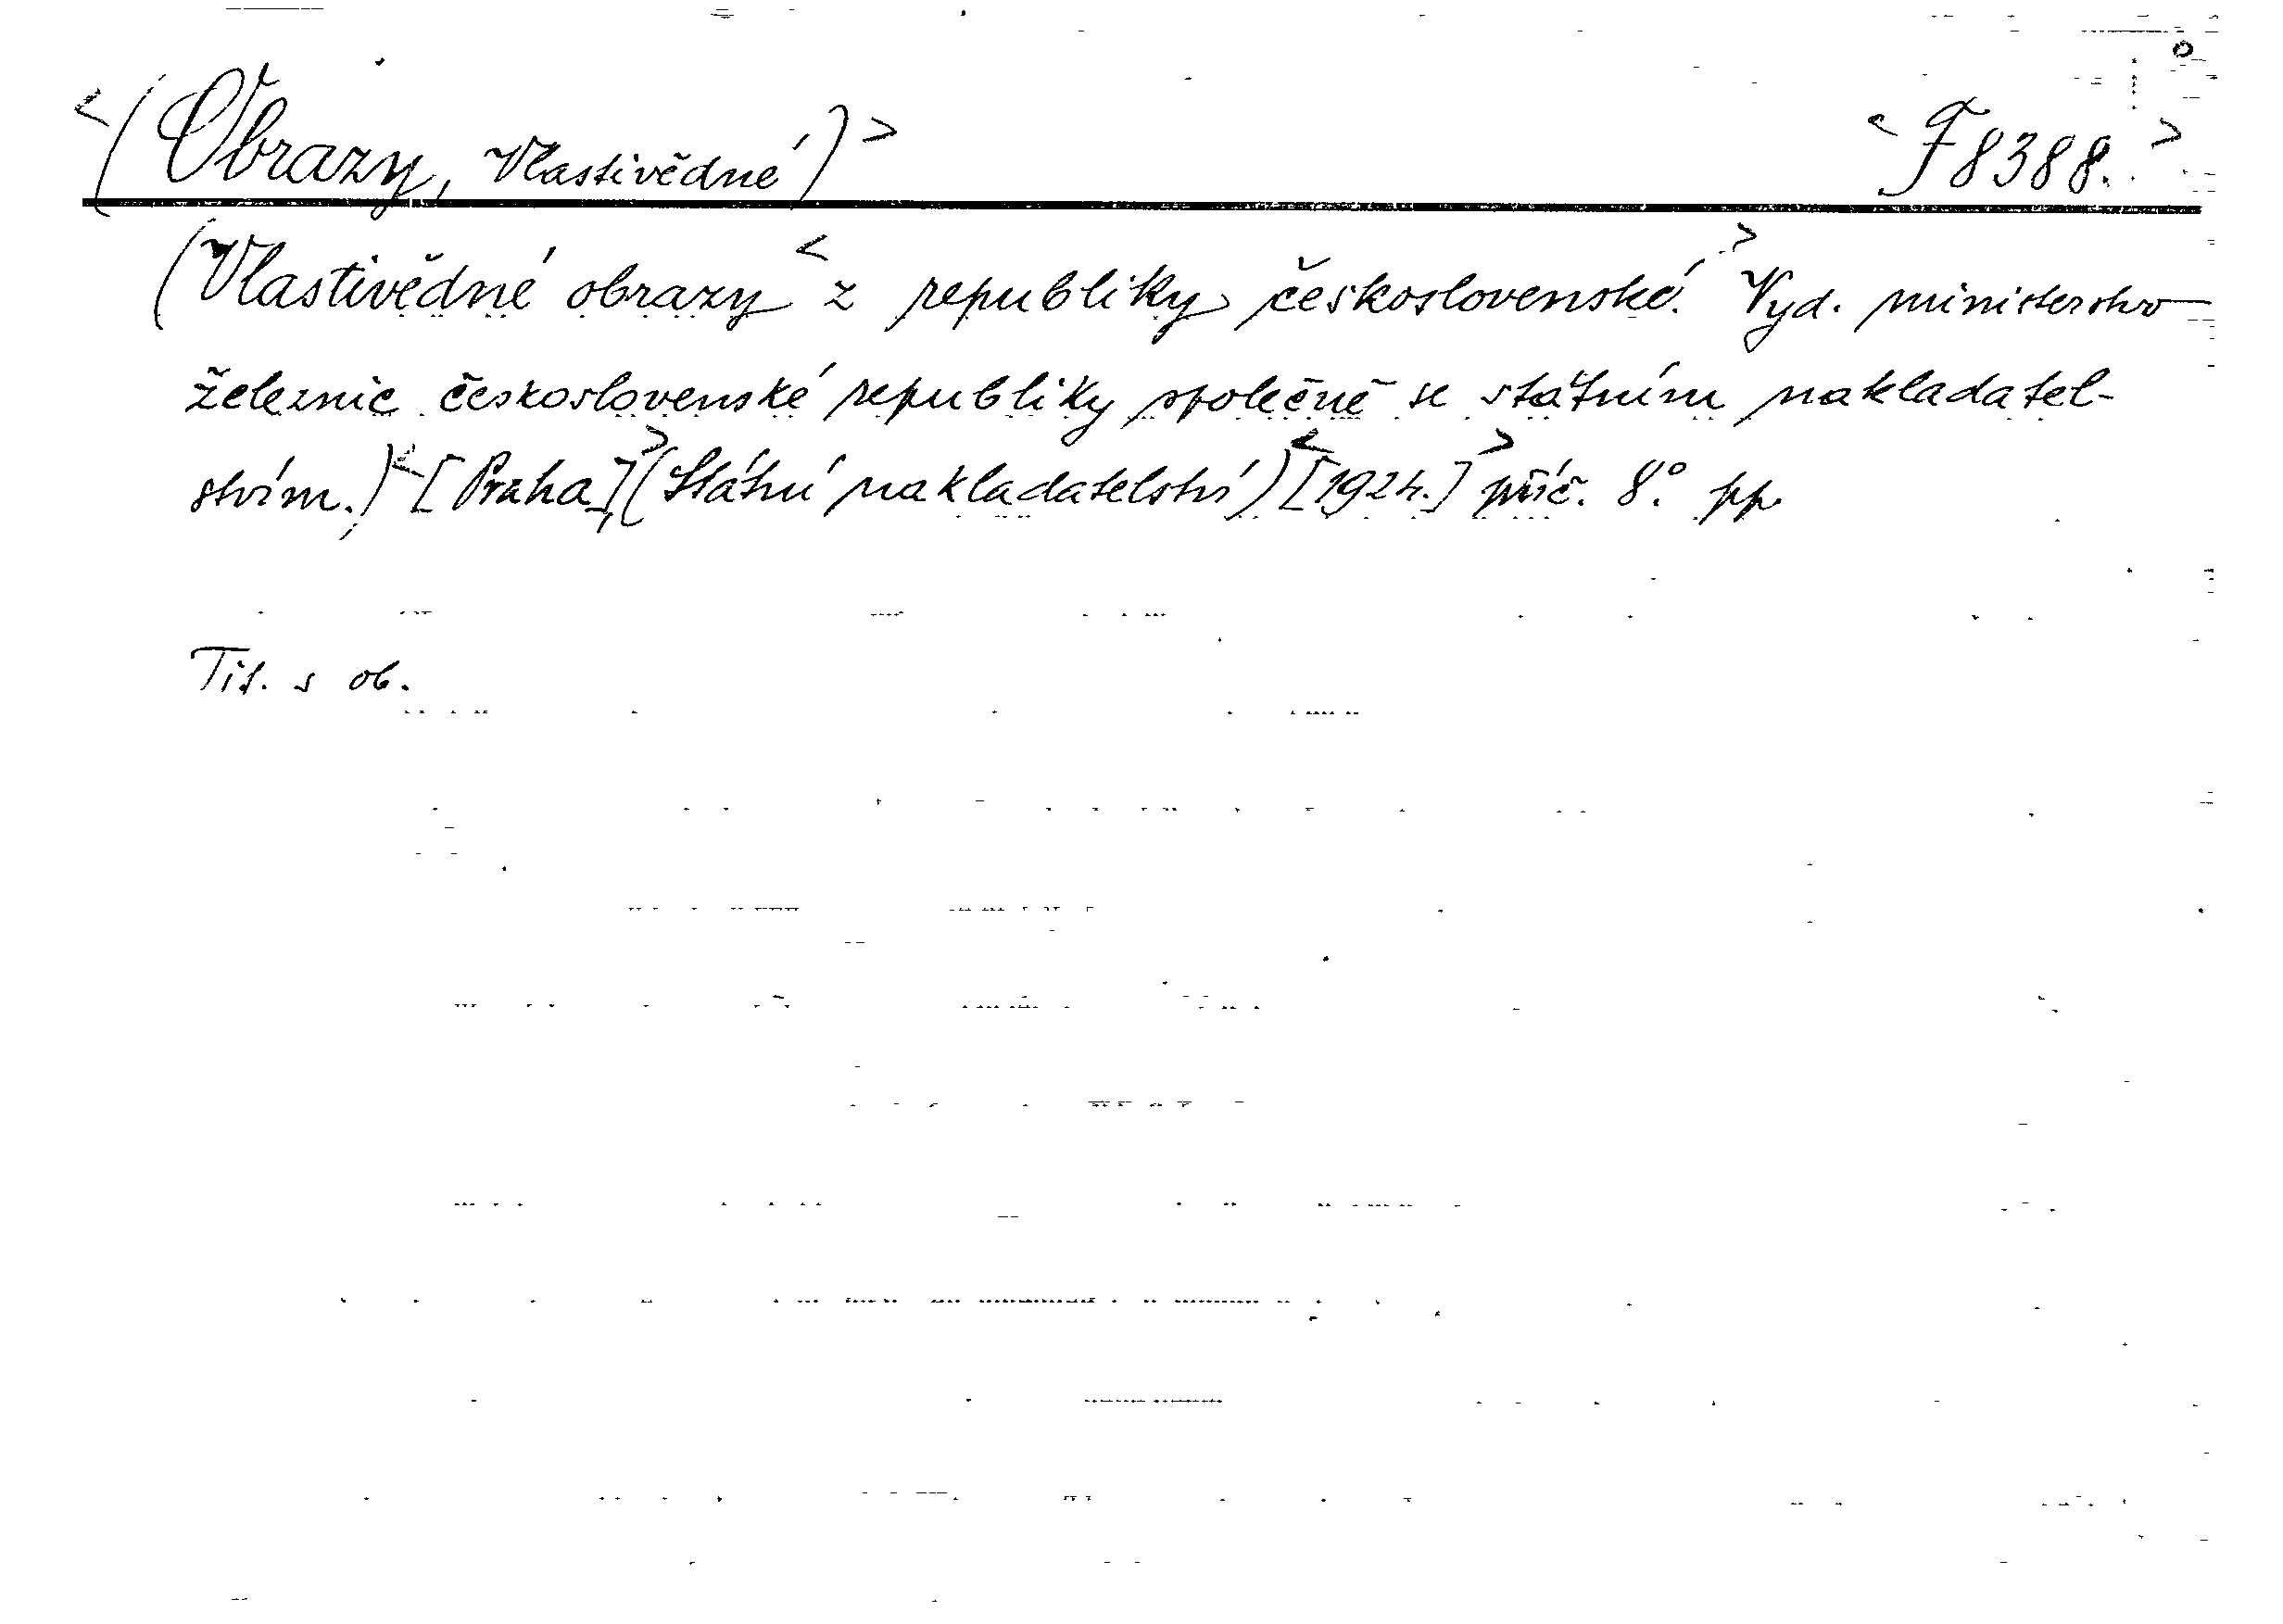 <(Obrazy, Vlastivědné)> <F 8388.>
(Vlastivědné obrazy < z republiky československé.> Vyd. ministerstvo
železnic československé republiky společně se státním nakladatel-
stvím.) <[Praha,]> (Státní nakladatelství) <[1924.]> příč. 8.° pp.
Tit. s ob.